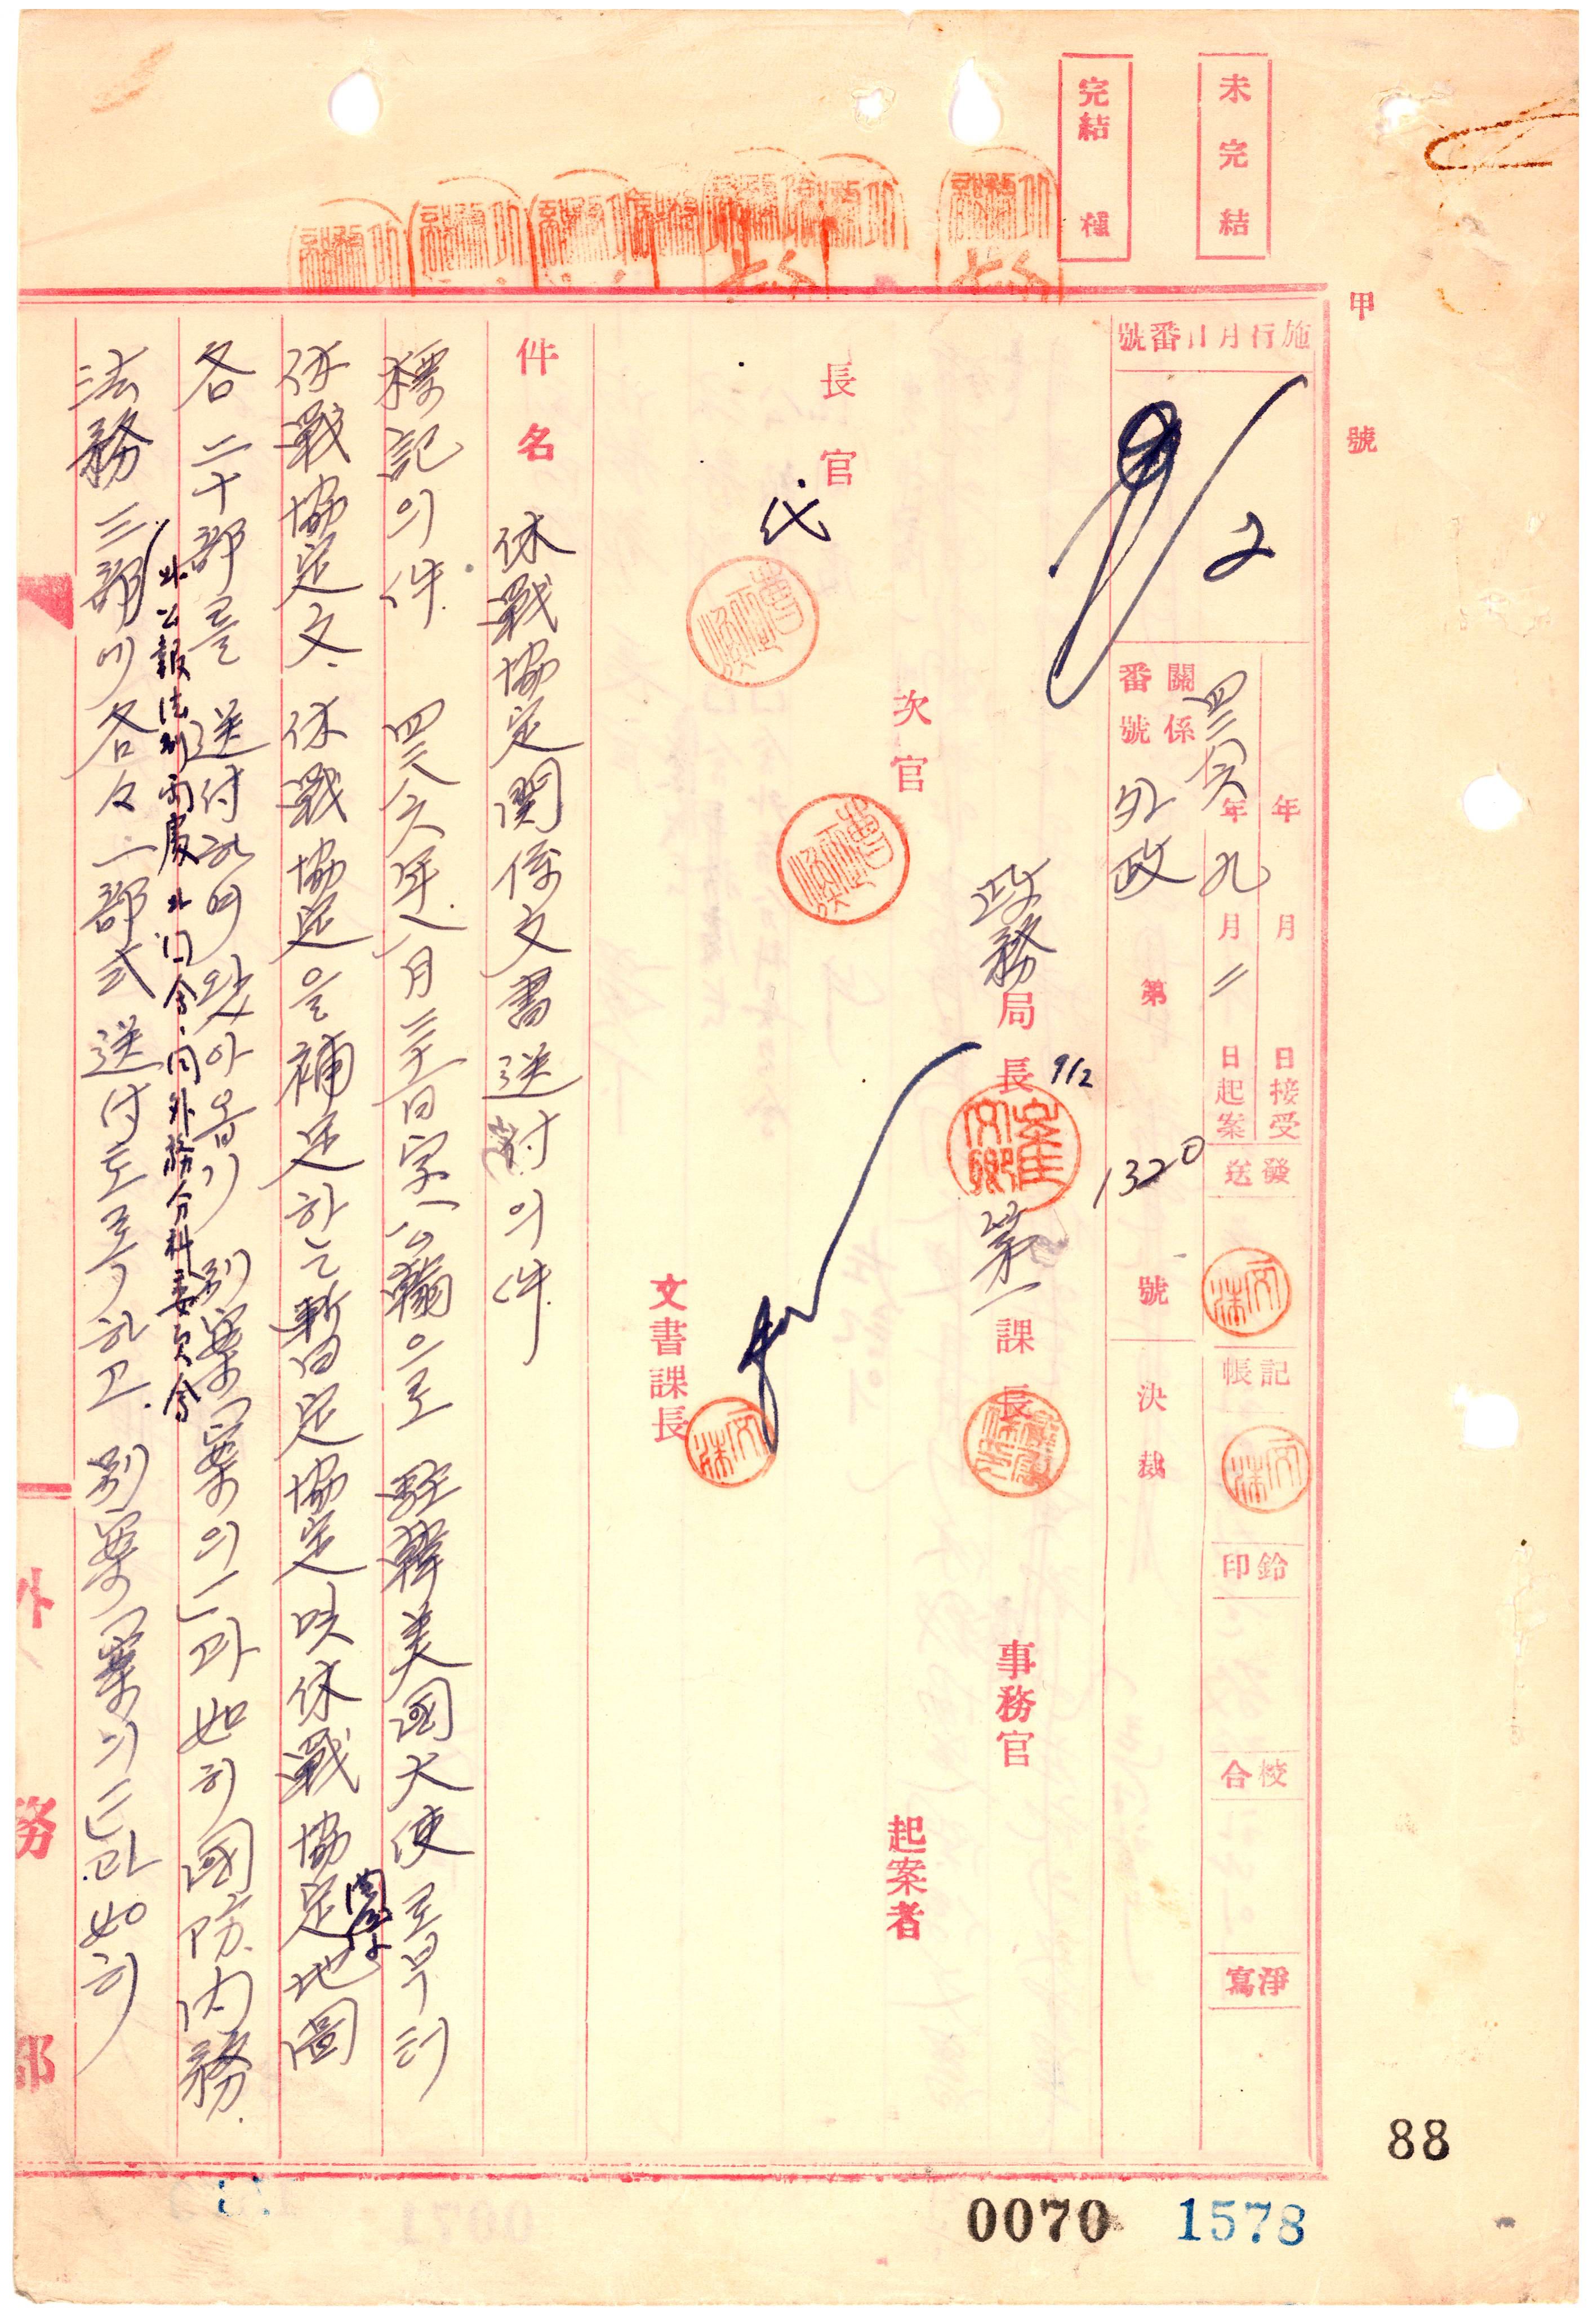 未完結
完結 種
甲 號
施行月日番號
9/2
年 月 日接受
四二八六年九月二日起案
發送
記帳
鈐印
校合
淨寫
關係番號
外政 第 1320 號
決裁
政務局長 9/2
第一課長
事務官
次官
起案者
長官
代
文書課長
件名 休戰協定関係文書送付의件
標記의件 四二八六年八月三十一日字公翰으로 駐韓美國大使로부터
休戰協定文、休戰協定을補足하는暫定協定및休戰協定地圖
各二十部를 送付하여왔아옵기 別案一案의一과如히國防、内務、
外公報法制両處
法務三部에各々一部式送付토록하고、別案一案의二과如히
外務部
88
0070 1578